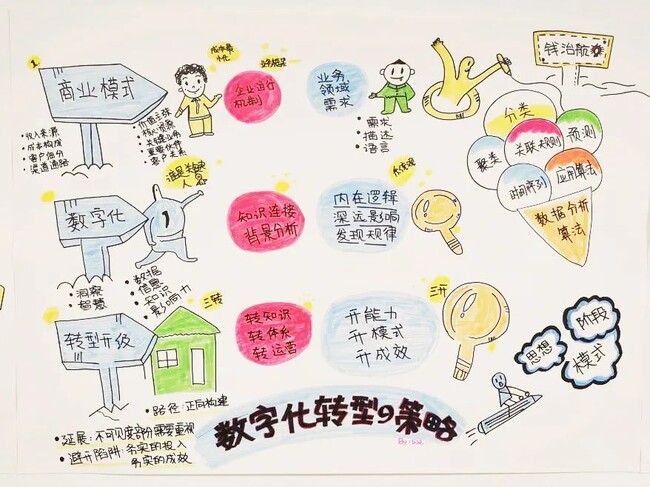 1
商业模式
成本最
小化
业务框架
企业运行
机制
业务
领域
需求
钱治航整
• 收入来源
• 成本构成
• 客户细分
• 渠道通路
• 价值主张
• 核心资源
• 关键业务
• 重要伙伴
• 客户关系
• 需求
• 描述
• 语言
分类
聚类
关联规则
预测
时间序列
应用算法
数据分析
算法
数字化
人
知识连接
背景分析
内在逻辑
深远影响
发现规律
• 洞察
• 智慧
• 数据
• 信息
• 知识
• 影响力
转型升级
三转
转知识
转体系
转运营
三开
开能力
开模式
开成效
思想
阶段
模式
• 路径:正向构建
• 延展:不可见度部份需要重视
• 避开陷阱:务实的投入
务实的成效
数字化转型の策略